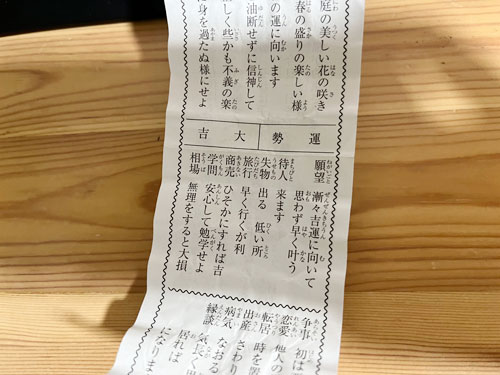 庭の美しい花の咲き
春の盛りの楽しい様
の運に向います
油断せずに信神して
しく些かも不義の楽
に身を過たぬ様にせよ
運勢 大吉
願望 漸々吉運に向いて
思わず早く叶う
待人 来ます
失物 出る 低い所
旅行 早く行くが利
商売 ひそかにすれば吉
学問 安心して勉学せよ
相場 無理をすると大損
争事 初は
恋愛 他人の
転居 時を
出産 さわり
病気 なおる
縁談 気長く
居れば
になりま